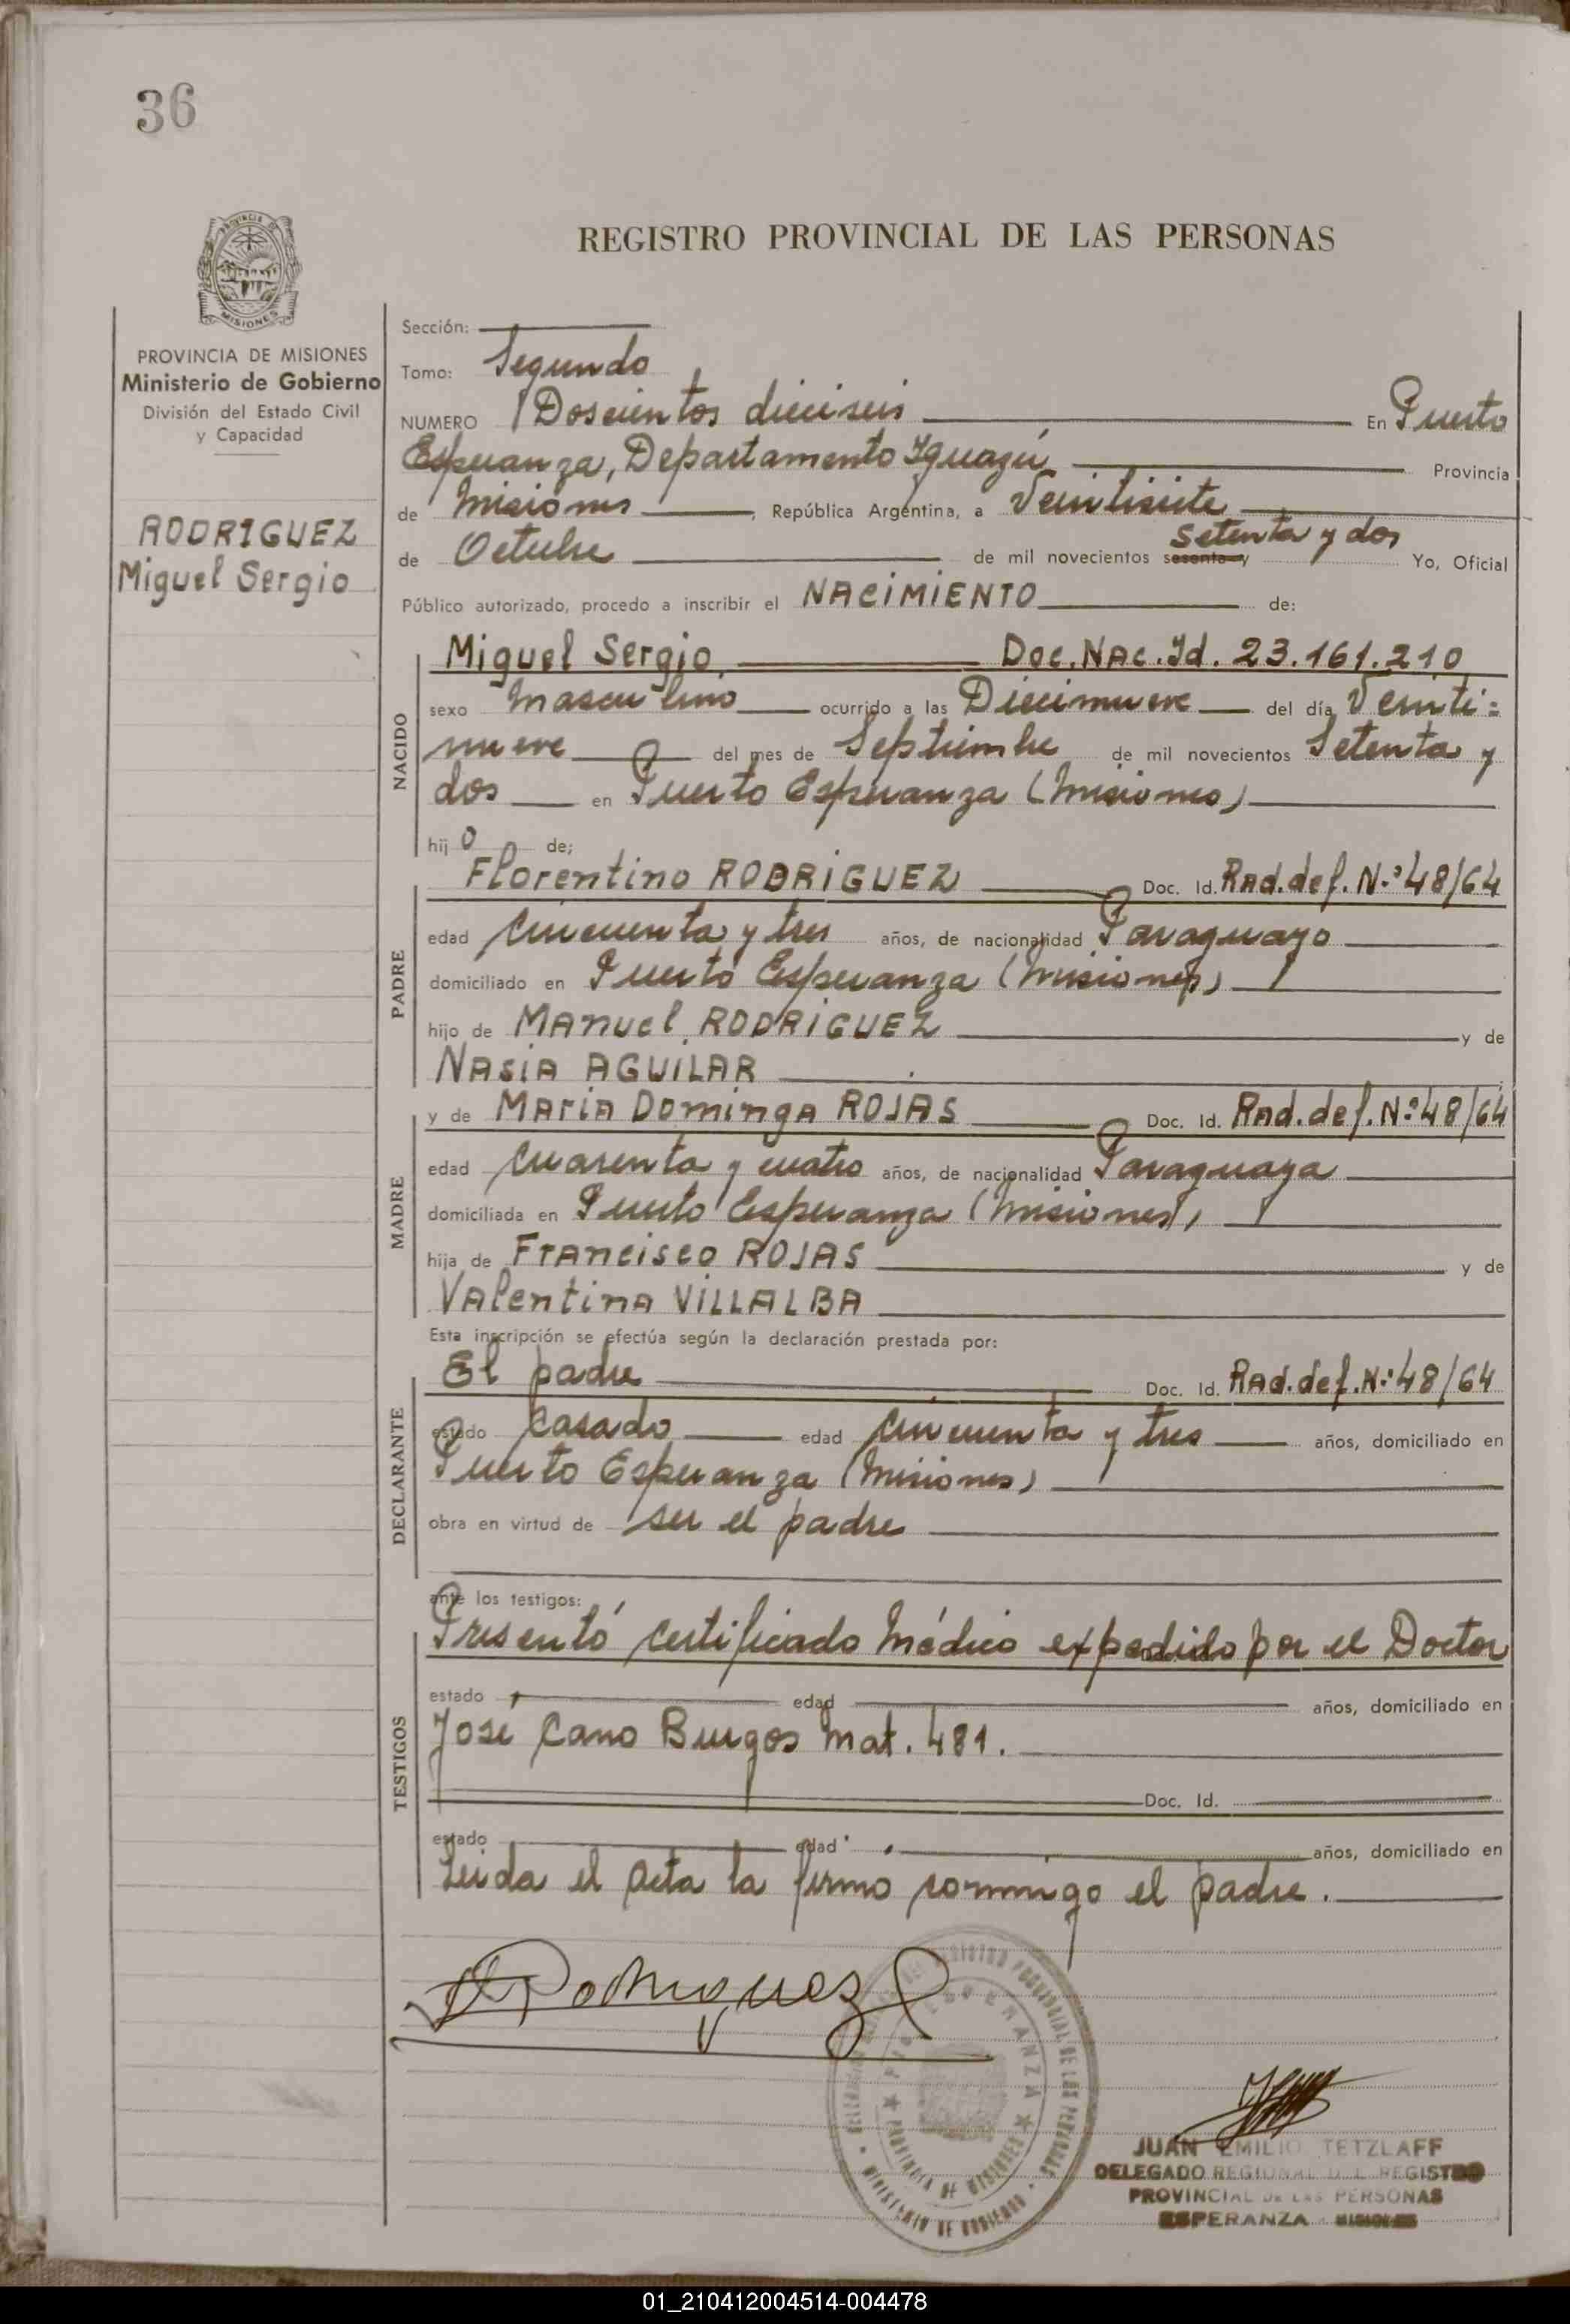 36
PROVINCIA
MISIONES
PROVINCIA DE MISIONES
Ministerio de Gobierno
División del Estado Civil
y Capacidad
RODRIGUEZ
Miguel Sergio
REGISTRO PROVINCIAL DE LAS PERSONAS
Sección:
Tomo: Segundo
NUMERO Doscientos dieciseis En Puerto
Esperanza, Departamento Iguazú Provincia
de Misiones, República Argentina, a Veintisiete
de Octubre de mil novecientos sesenta y setenta y dos Yo, Oficial
Público autorizado, procedo a inscribir el NACIMIENTO de:
NACIDO
Miguel Sergio Doc. Nac. Id. 23.161.210
sexo masculino ocurrido a las Diecinueve del día Veinti=
nueve del mes de Septiembre de mil novecientos Setenta y
dos en Puerto Esperanza (Misiones)
hijo de;
PADRE
Florentino RODRIGUEZ Doc. Id. Rad. def. N.º 48/64
edad Cincuenta y tres años, de nacionalidad Paraguayo
domiciliado en Puerto Esperanza (Misiones)
hijo de Manuel RODRIGUEZ y de
NASIA AGUILAR
MADRE
y de Maria Dominga ROJAS Doc. Id. Rad. def. Nº 48/64
edad Cuarenta y cuatro años, de nacionalidad Paraguaya
domiciliada en Puerto Esperanza (Misiones)
hija de Francisco ROJAS y de
Valentina VILLALBA
Esta inscripción se efectúa según la declaración prestada por:
DECLARANTE
El padre Doc. Id. Rad. def. N.º 48/64
estado Casado edad Cincuenta y tres años, domiciliado en
Puerto Esperanza (Misiones)
obra en virtud de ser el padre
ante los testigos:
TESTIGOS
Presentó certificado Médico expedido por el Doctor
estado edad años, domiciliado en
José Cano Burgos Mat. 481.
Doc. Id.
estado edad años, domiciliado en
Leida el acta la firmó conmigo el padre.
Rodriguez
PROVINCIAL DE LAS PERSONAS
ESPERANZA
PROVINCIA DE MISIONES
MINISTERIO DE GOBIERNO
JUAN EMILIO TETZLAFF
DELEGADO REGIONAL DEL REGISTRO
PROVINCIAL DE LAS PERSONAS
ESPERANZA - MISIONES
01_210412004514-004478